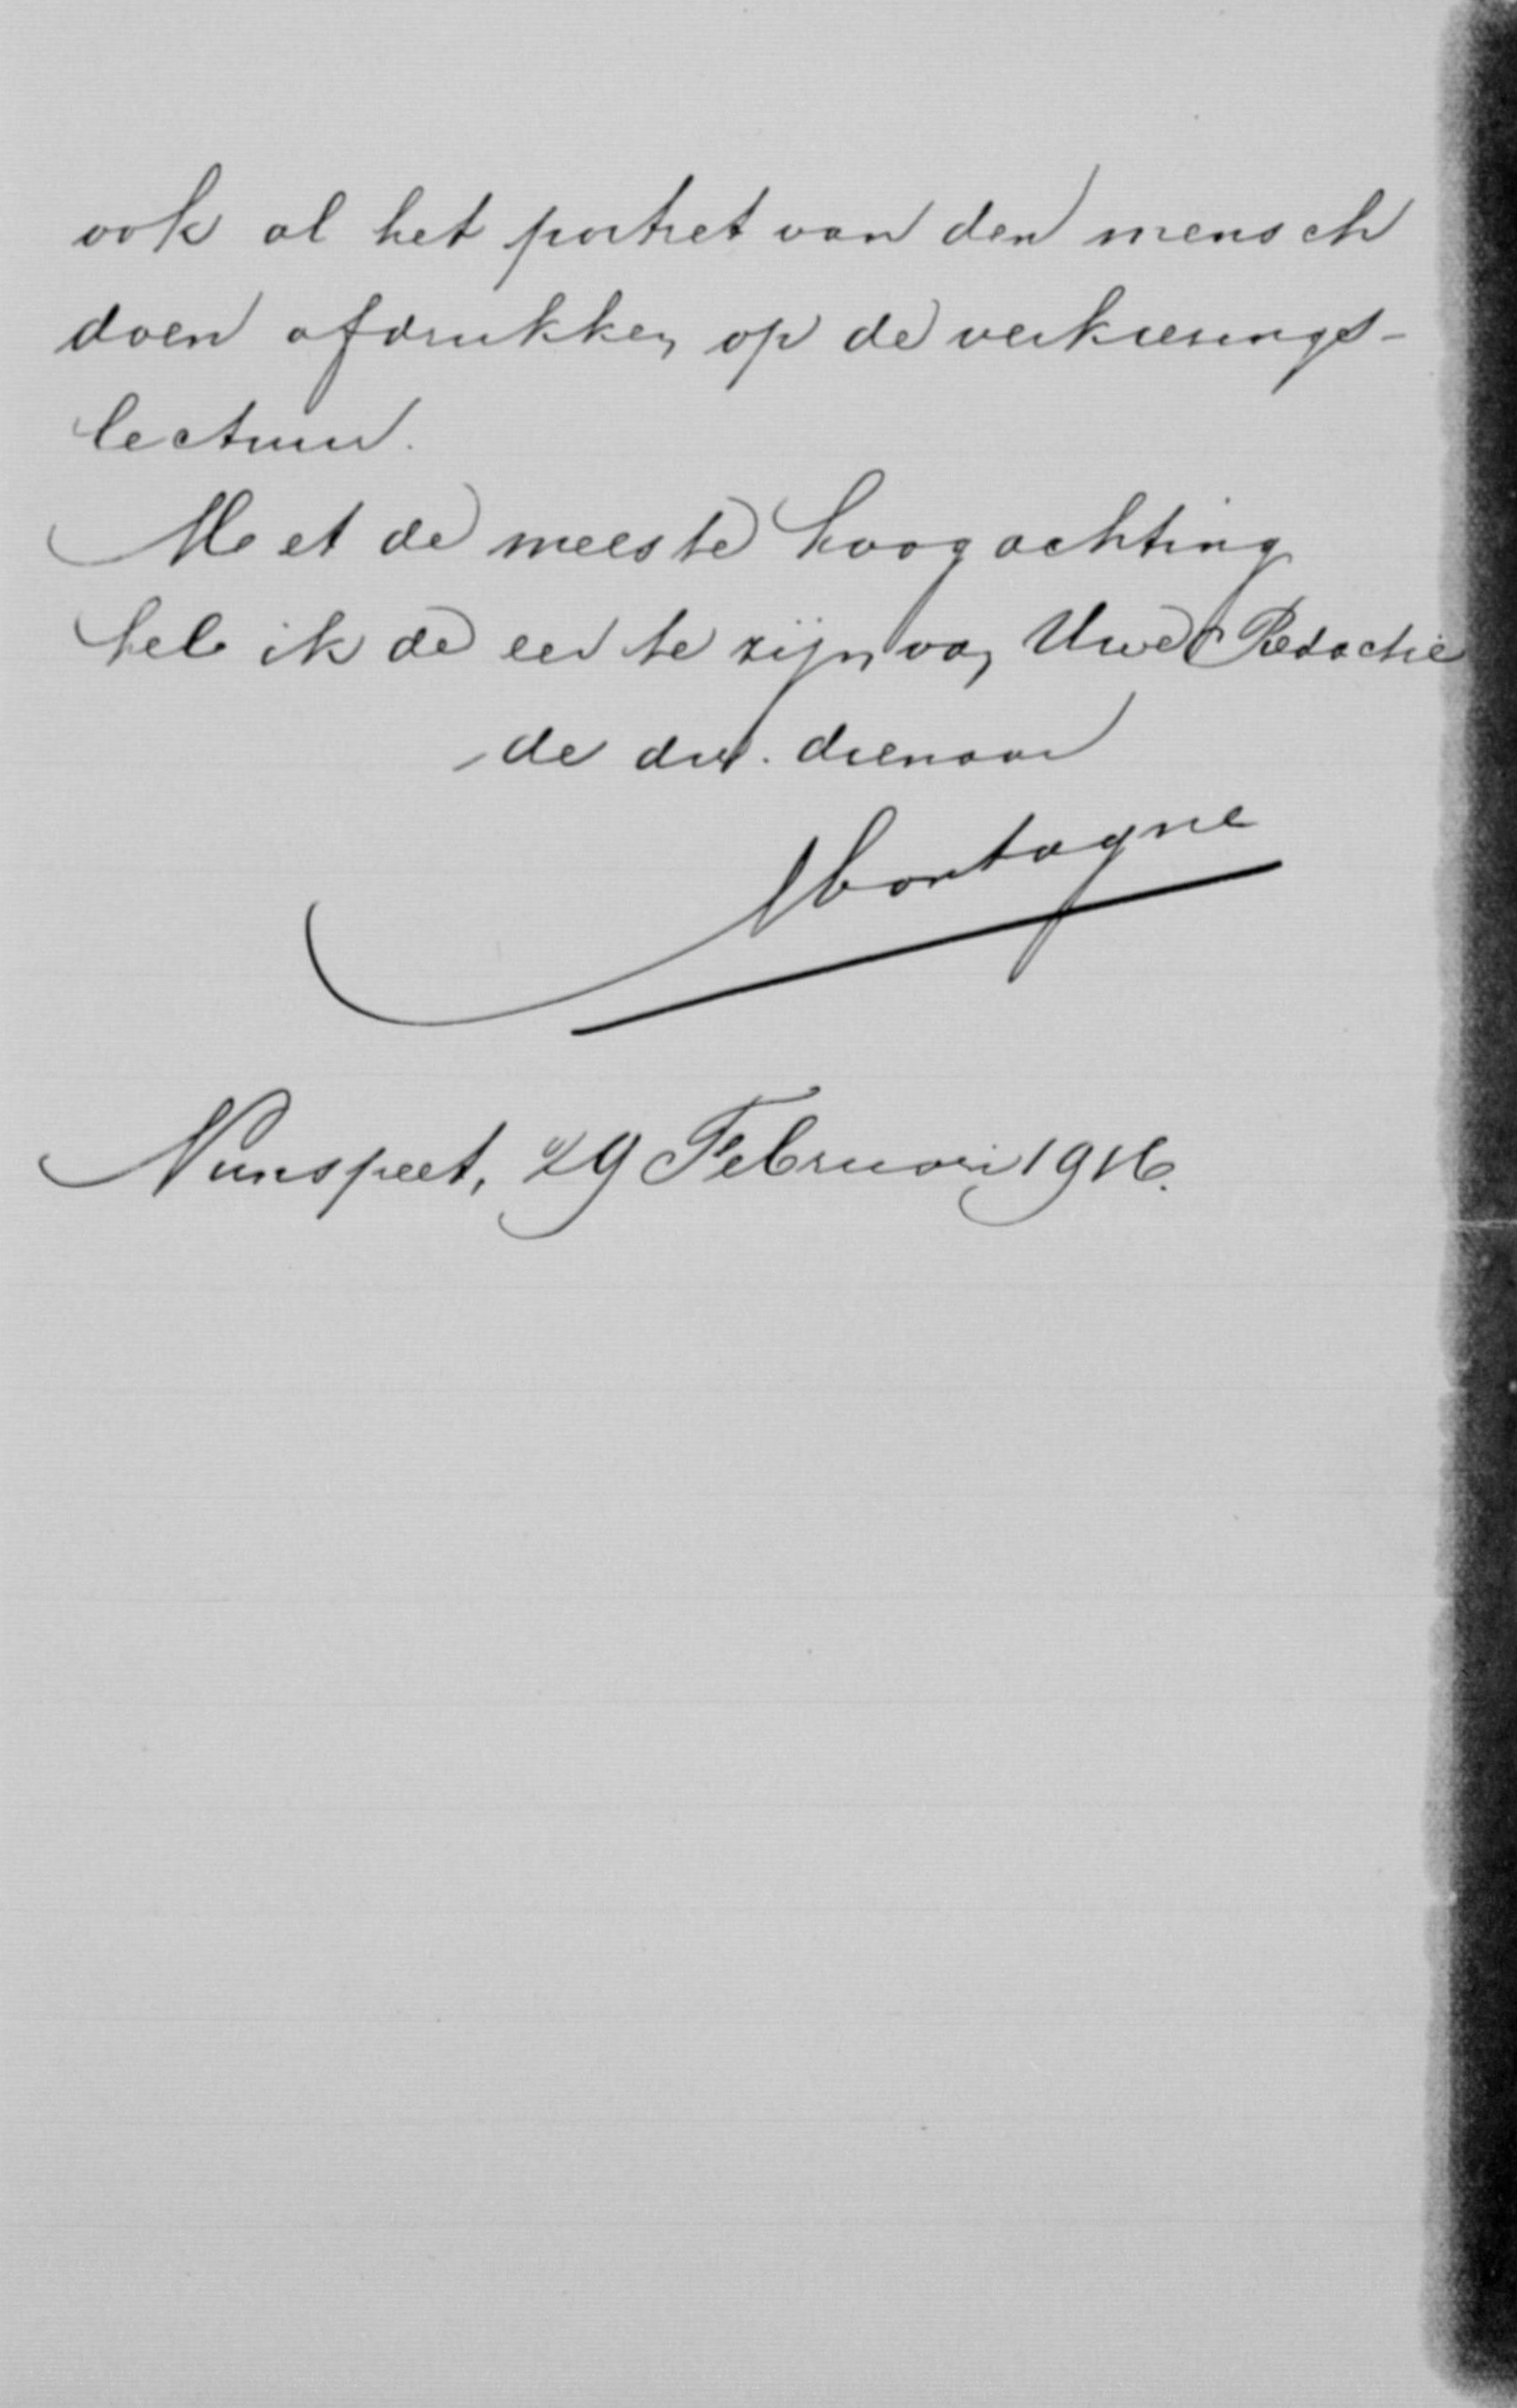 ook al het portret van den mensch
doen afdrukken op de verkiezings-
lectuur.
Met de meeste hoogachting
heb ik de eer te zijn van Uwe Redactie
de dw. dienaar
Montagne
Nunspeet, 29 Februari 1916.